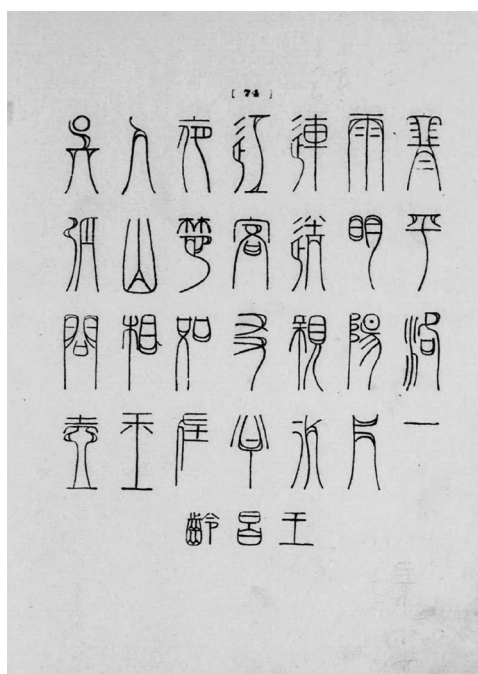 [ 74 ]
寒雨連江夜入吳
平明送客楚山孤
洛陽親友如相問
一片冰心在玉壺
王昌齡